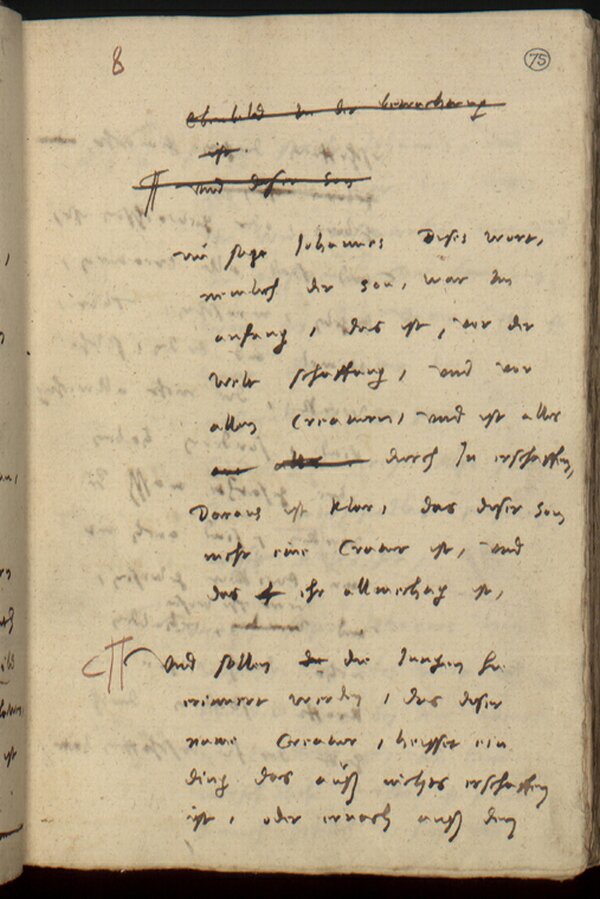 8
75
Ebenbild in der betrachtung
ist.
und diser son
wie sagt Johannes Dises wort,
nemlich der son, war im
anfang, das ist, vor der
welt schaffung, und vor
allen Creaturn, und ist alles
durch In erschaffen,
Doraus ist klar, das diser son
nicht eine Creatur ist, und
das ehr allmechtig ist,
Und sollen die Jungen hie
erinnert werden, das diser
name Creatur, heysset ein
ding das auß nichts erschaffen
ist, oder ernach auß dem